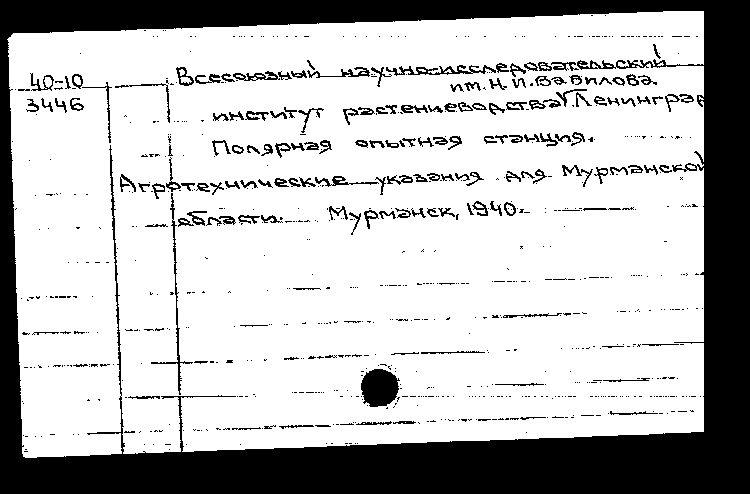 40-10
3446
Всесоюзный научно-исследовательский
им. Н. И. Вавилова.
институт растениеводства Ленинград
Полярная опытная станция.
Агротехнические указания для Мурманской
области. Мурманск, 1940.